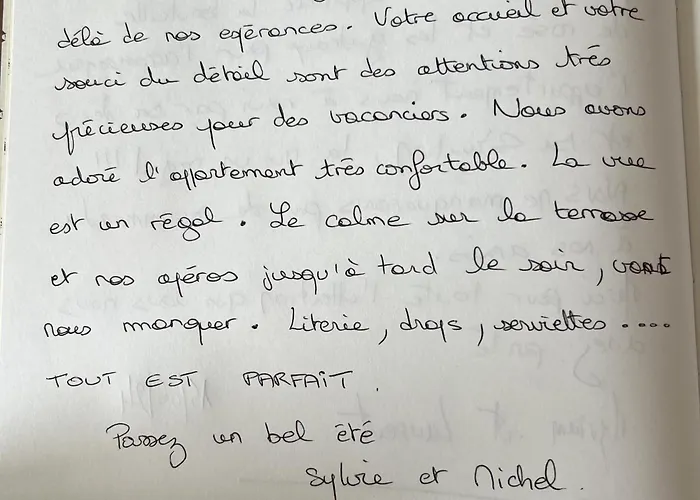 délà de nos espérances. Votre accueil et votre
souci du détail sont des attentions très
précieuses pour des vacanciers. Nous avons
adoré l'appartement très confortable. La vue
est un régal. Le calme sur la terrasse
et nos apéros jusqu'à tard le soir, vont
nous manquer. Literie, draps, serviettes ....
TOUT EST PARFAIT.
Passez un bel été
Sylvie et Michel.